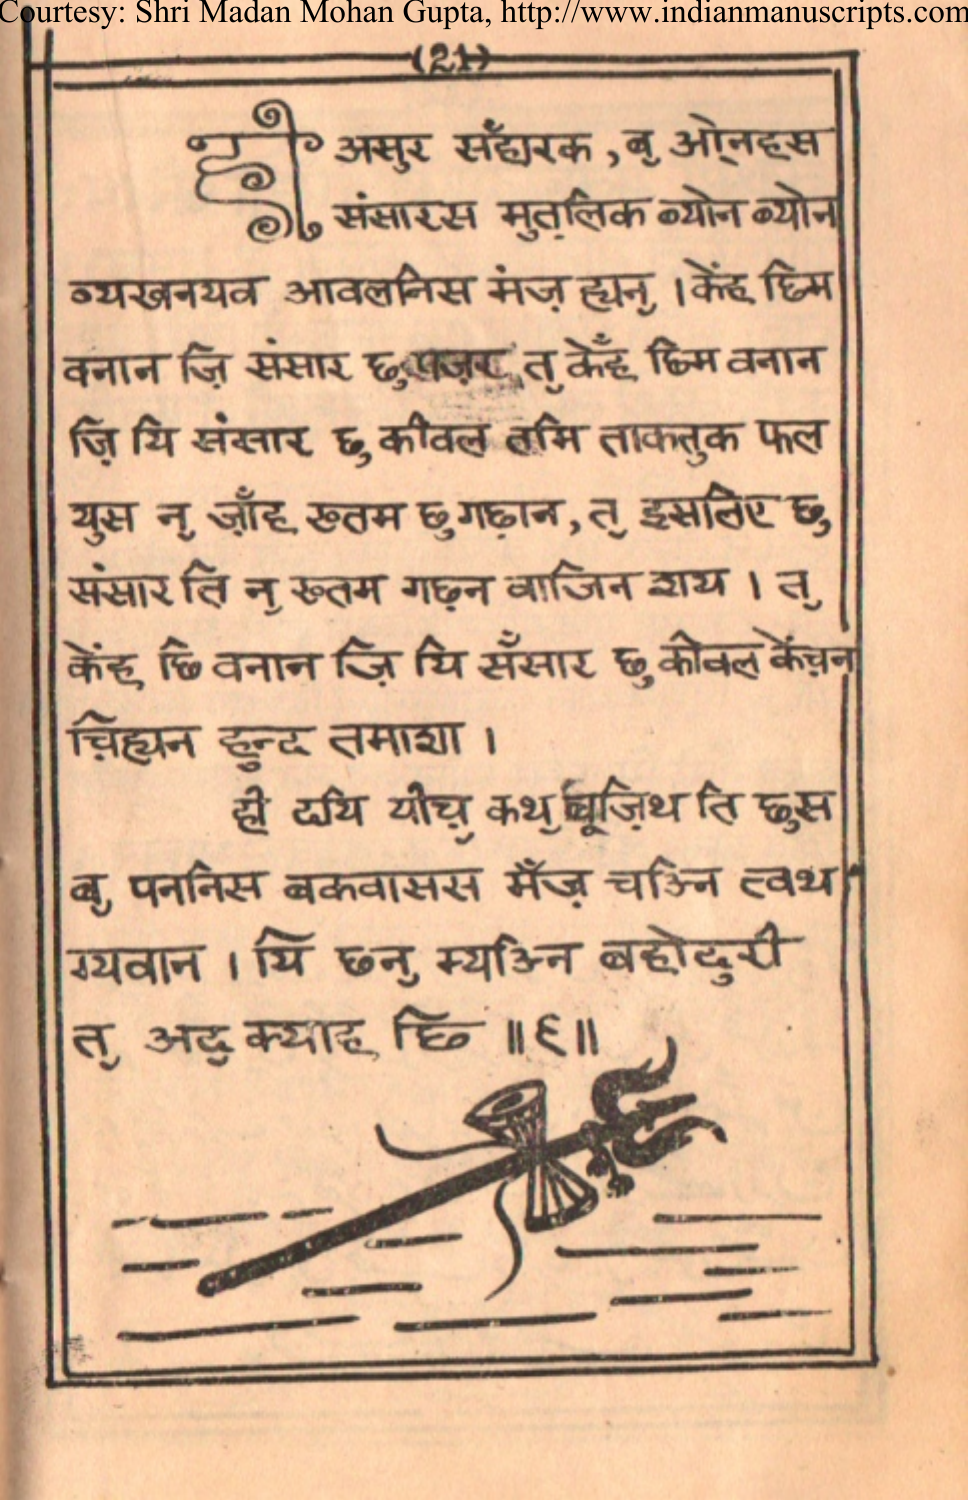 Courtesy: Shri Madan Mohan Gupta, http://www.indianmanuscripts.com
(21)
ही असुर सँहारक, बॖ ओ़नहस
संसारस मुतलिक ब्योन ब्योन
व्यखनयव आवलनिस मंज़ ह्यनॖ । केंह छिम
वनान ज़ि संसार छु पज़र तॖ केँह छिम वनान
ज़ि यि संसार छु कीवल तमि ताकतुक फल
युस नॖ ज़ाँह ख्तम छु गछ़ान, तॖ इसलिए छु
संसार ति नॖ ख्तम गछ़न वाजिन शय । तॖ
केंह छि वनान ज़ि यि सँसार छु कीवल केंच़न
च़िह्यन हुन्द तमाशा ।
ही दयि यीचॖ कथॖ बूज़िथ ति छुस
बॖ पननिस बकवासस मँज़ चञिन त्वथ
ग्यवान । यि छनॖ म्यञिन बहोदुरी
तॖ अदॖ क्याह छि ॥६॥